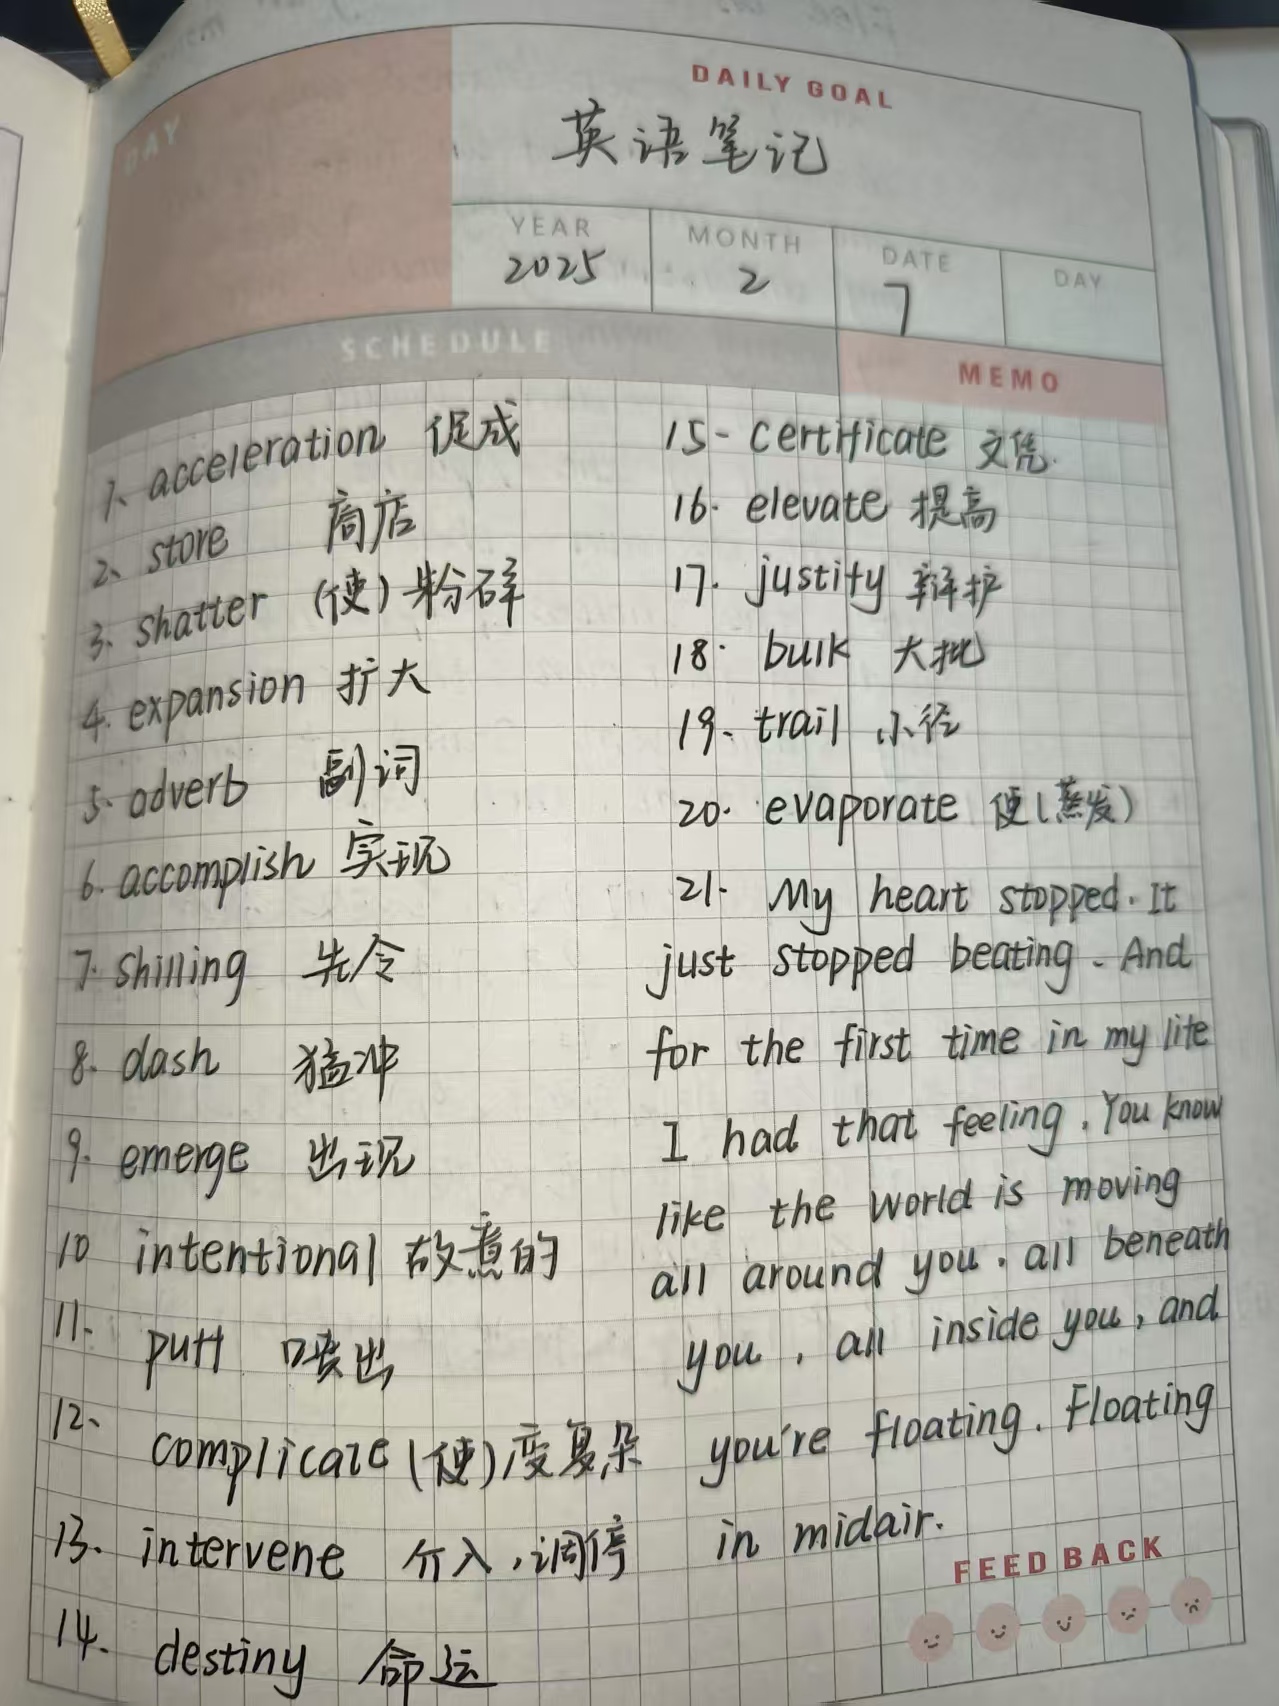 DAILY GOAL
DAY
英语笔记
YEAR MONTH DATE DAY
2025 2 7
SCHEDULE
MEMO
1、acceleration 促成
2、store 商店
3. shatter (使)粉碎
4. expansion 扩大
5. adverb 副词
6. accomplish 实现
7. shilling 先令
8. dash 猛冲
9. emerge 出现
10 intentional 故意的
11. puff 喷出
12、complicate (使)变复杂
13. intervene 介入,调停
14. destiny 命运
15- certificate 文凭.
16. elevate 提高
17. justify 辩护
18. bulk 大批
19. trail 小径
20. evaporate 使(蒸发)
21. My heart stopped. It
just stopped beating. And
for the first time in my life
I had that feeling. You know
like the world is moving
all around you. all beneath
you, all inside you, and
you're floating. Floating
in midair.
FEED BACK